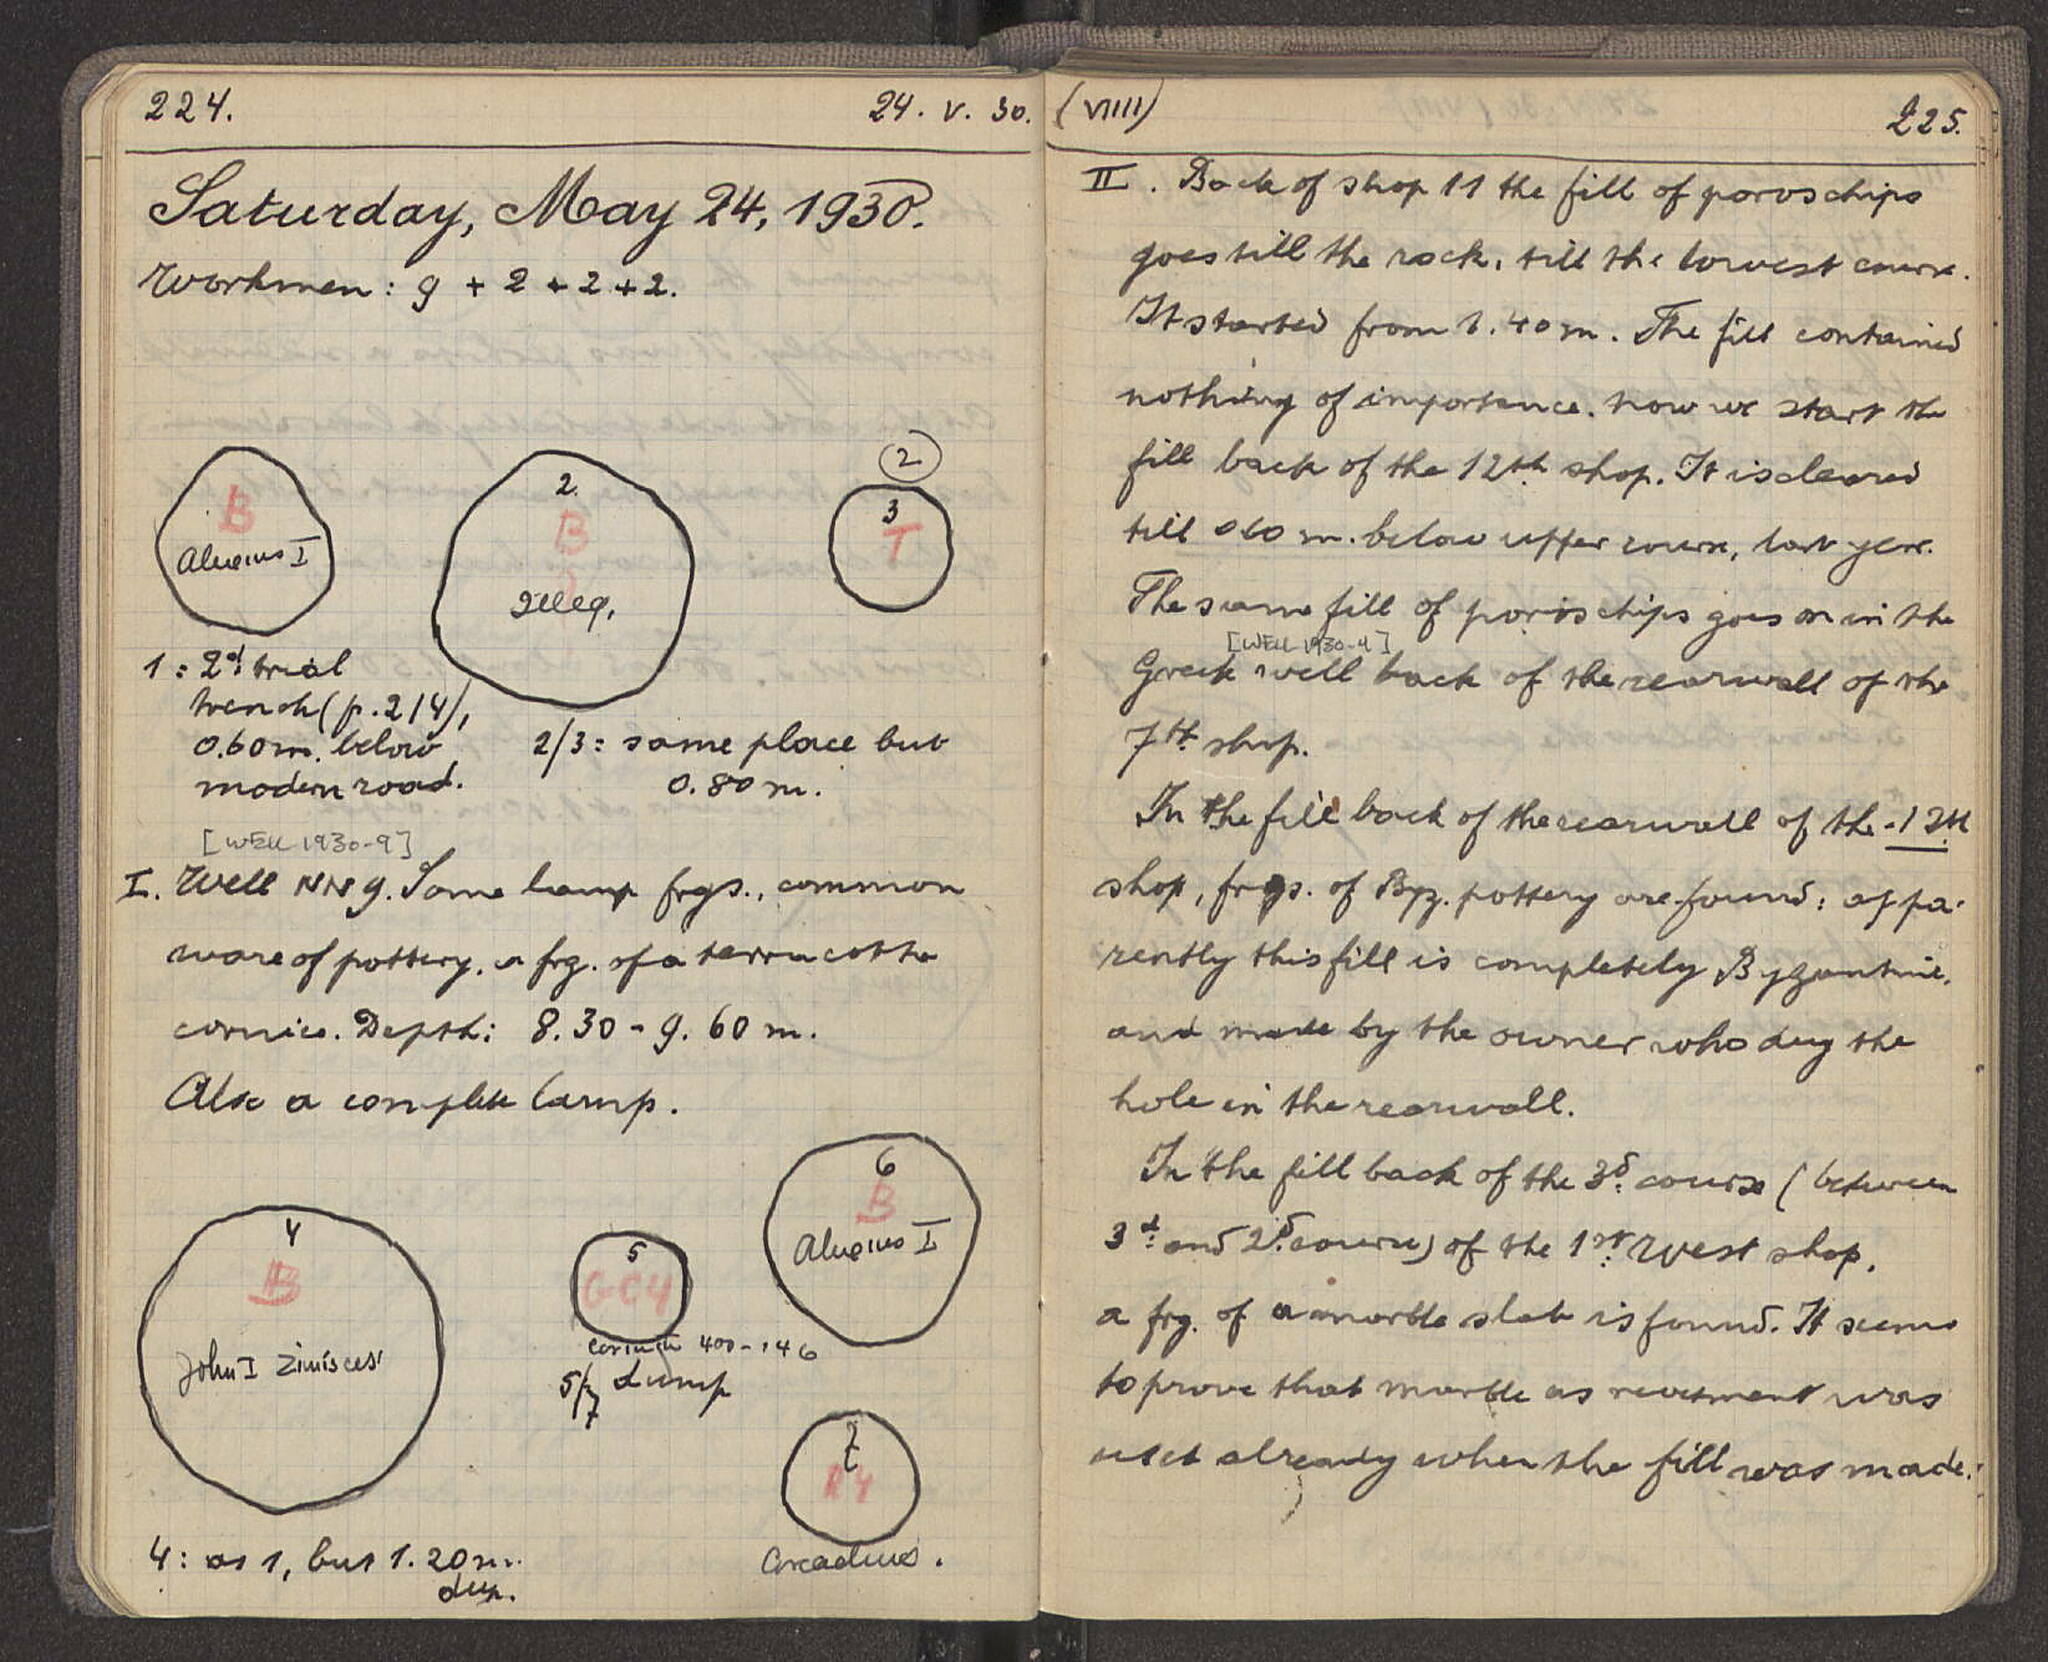 224.
24. V. 30.
Saturday, May 24, 1930.
Workmen: 9 + 2 + 2 + 2.
B
Alexius I
2.
B
Illeg.
2
3
T
1: 2d trial
trench (p. 214),
0.60 m. below
modern road.
2/3: same place but
0.80 m.
[WELL 1930-9]
I. Well NN 9. Some lamp frgs., common
ware of pottery, a frg. of a terracotta
cornice. Depth: 8.30 - 9.60 m.
Also a complete lamp.
4
B
John I Zimisces
5
GC4
Corinth 400-146
5/7 dump
6
B
Alexius I
7
R4
Arcadius.
4: as 1, but 1.20 m.
deep.
(VIIII)
225.
II. Back of shop 11 the fill of poros chips
goes till the rock, till the lowest course.
It started from 1.40 m. The fill contained
nothing of importance. Now we start the
fill back of the 12th shop. It is cleared
till 0.60 m. below upper course, last year.
The same fill of poros chips goes on in the
[WELL 1930-4]
Greek well back of the rearwall of the
7th shop.
In the fill back of the rearwall of the 12th
shop, frgs. of Byz. pottery are found: appa-
rently this fill is completely Byzantine,
and made by the owner who dug the
hole in the rearwall.
In the fill back of the 3d course (between
3d and 2d course) of the 1st West shop,
a frg. of a marble slab is found. It seems
to prove that marble as revetment was
used already when the fill was made.